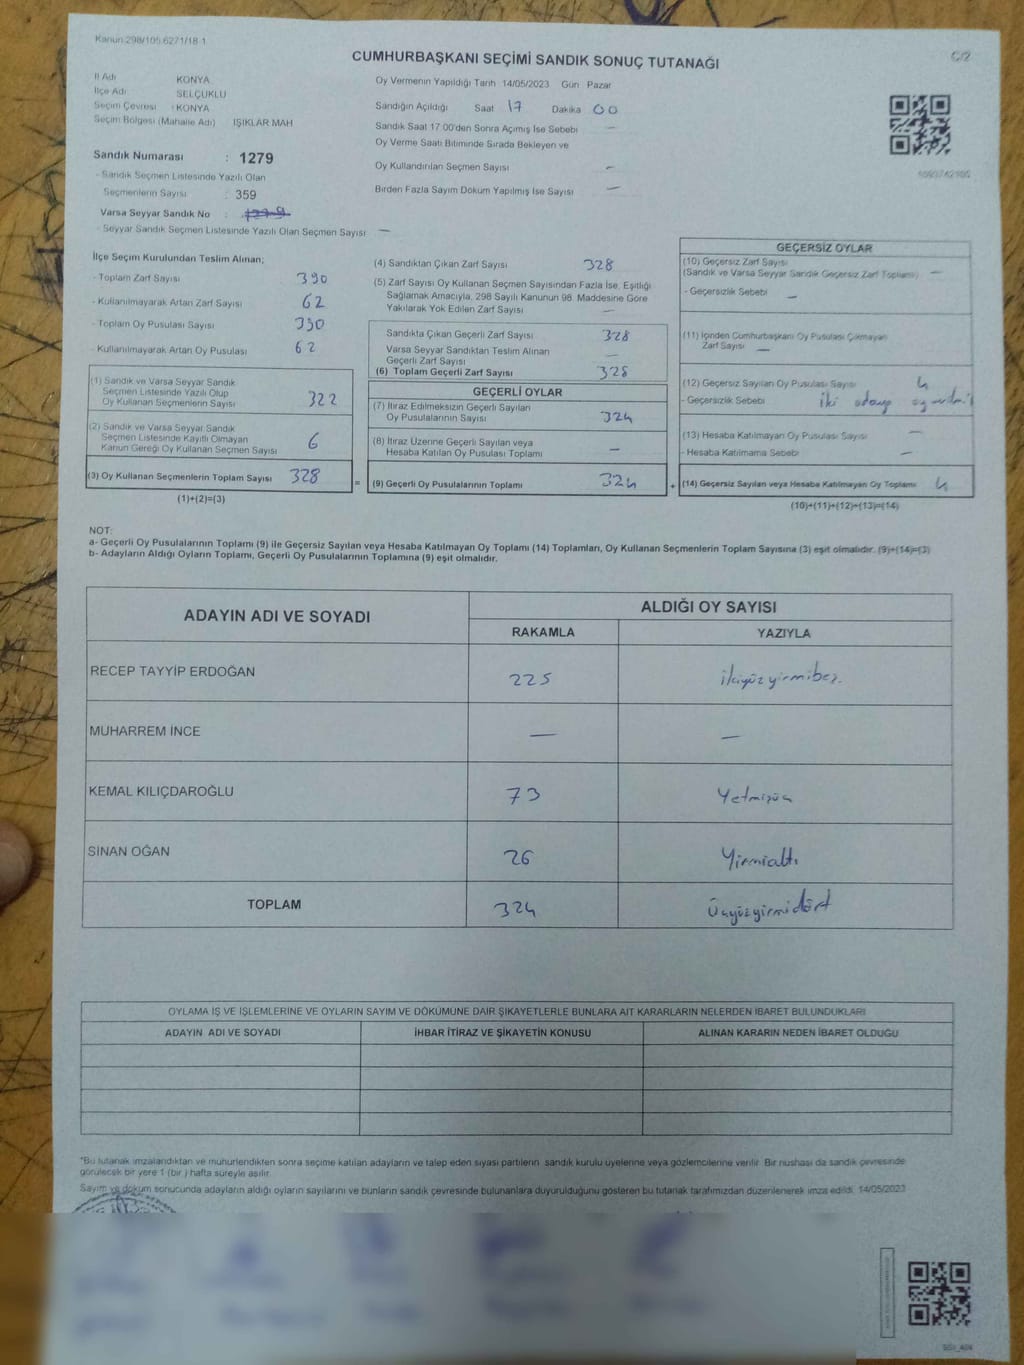 Kanun 298/105 6271/18-1
C/2
CUMHURBAŞKANI SEÇİMİ SANDIK SONUÇ TUTANAĞI
İl Adı KONYA
İlçe Adı SELÇUKLU
Seçim Çevresi : KONYA
Seçim Bölgesi (Mahalle Adı) IŞIKLAR MAH
Sandık Numarası : 1279
- Sandık Seçmen Listesinde Yazılı Olan
Seçmenlerin Sayısı : 359
Varsa Seyyar Sandık No :
- Seyyar Sandık Seçmen Listesinde Yazılı Olan Seçmen Sayısı —
Oy Vermenin Yapıldığı Tarih 14/05/2023 Gün Pazar
Sandığın Açıldığı Saat 17 Dakika 00
Sandık Saat 17:00'den Sonra Açımış İse Sebebi —
Oy Verme Saati Bitiminde Sırada Bekleyen ve
Oy Kullandırılan Seçmen Sayısı —
Birden Fazla Sayım Döküm Yapılmış İse Sayısı —
İlçe Seçim Kurulundan Teslim Alınan;
- Toplam Zarf Sayısı 390
- Kullanılmayarak Artan Zarf Sayısı 62
- Toplam Oy Pusulası Sayısı 390
- Kullanılmayarak Artan Oy Pusulası 62
(1) Sandık ve Varsa Seyyar Sandık
Seçmen Listesinde Yazılı Olup
Oy Kullanan Seçmenlerin Sayısı 322
(2) Sandık ve Varsa Seyyar Sandık
Seçmen Listesinde Kayıtlı Olmayan
Kanun Gereği Oy Kullanan Seçmen Sayısı 6
(3) Oy Kullanan Seçmenlerin Toplam Sayısı 328
(1)+(2)=(3)
(4) Sandıktan Çıkan Zarf Sayısı 328
(5) Zarf Sayısı Oy Kullanan Seçmen Sayısından Fazla İse, Eşitliği
Sağlamak Amacıyla, 298 Sayılı Kanunun 98. Maddesine Göre
Yakılarak Yok Edilen Zarf Sayısı —
Sandıkta Çıkan Geçerli Zarf Sayısı 328
Varsa Seyyar Sandıktan Teslim Alınan
Geçerli Zarf Sayısı —
(6) Toplam Geçerli Zarf Sayısı 328
GEÇERLİ OYLAR
(7) İtiraz Edilmeksizin Geçerli Sayılan
Oy Pusulalarının Sayısı 324
(8) İtiraz Üzerine Geçerli Sayılan veya
Hesaba Katılan Oy Pusulası Toplamı —
= (9) Geçerli Oy Pusulalarının Toplamı 324 +
GEÇERSİZ OYLAR
(10) Geçersiz Zarf Sayısı
(Sandık ve Varsa Seyyar Sandık Geçersiz Zarf Toplamı) —
- Geçersizlik Sebebi —
(11) İçinden Cumhurbaşkanı Oy Pusulası Çıkmayan
Zarf Sayısı —
(12) Geçersiz Sayılan Oy Pusulası Sayısı 4
- Geçersizlik Sebebi iki adaya oy
(13) Hesaba Katılmayan Oy Pusulası Sayısı —
- Hesaba Katılmama Sebebi —
(14) Geçersiz Sayılan veya Hesaba Katılmayan Oy Toplamı 4
(10)+(11)+(12)+(13)=(14)
NOT:
a- Geçerli Oy Pusulalarının Toplamı (9) ile Geçersiz Sayılan veya Hesaba Katılmayan Oy Toplamı (14) Toplamları, Oy Kullanan Seçmenlerin Toplam Sayısına (3) eşit olmalıdır. (9)+(14)=(3)
b- Adayların Aldığı Oyların Toplamı, Geçerli Oy Pusulalarının Toplamına (9) eşit olmalıdır.
ADAYIN ADI VE SOYADI ALDIĞI OY SAYISI
RAKAMLA YAZIYLA
RECEP TAYYİP ERDOĞAN 225 ikiyüzyirmibeş.
MUHARREM İNCE — —
KEMAL KILIÇDAROĞLU 73 Yetmişüç
SİNAN OĞAN 26 Yirmialtı
TOPLAM 324 Üçyüzyirmidört
OYLAMA İŞ VE İŞLEMLERİNE VE OYLARIN SAYIM VE DÖKÜMÜNE DAİR ŞİKAYETLERLE BUNLARA AİT KARARLARIN NELERDEN İBARET BULUNDUKLARI
ADAYIN ADI VE SOYADI İHBAR İTİRAZ VE ŞİKAYETİN KONUSU ALINAN KARARIN NEDEN İBARET OLDUĞU
"Bu tutanak imzalandıktan ve mühürlendikten sonra seçime katılan adayların ve talep eden siyasi partilerin sandık kurulu üyelerine veya gözlemcilerine verilir. Bir nüshası da sandık çevresinde
görülecek bir yere 1 (bir ) hafta süreyle asılır.
Sayım ve döküm sonucunda adayların aldığı oyların sayılarını ve bunların sandık çevresinde bulunanlara duyurulduğunu gösteren bu tutanak tarafımızdan düzenlenerek imza edildi. 14/05/2023